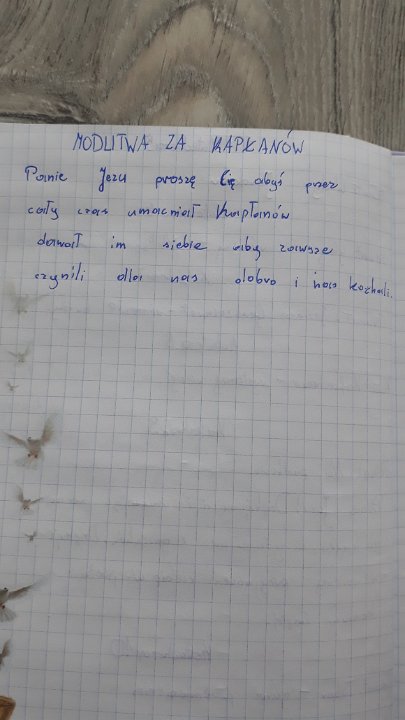 MODLITWA ZA KAPŁANÓW
Panie Jezu proszę Cię abyś przez
cały czas umacniał Kapłanów
dawał im siebie aby zawsze
czynili dla nas dobro i nas kochali.